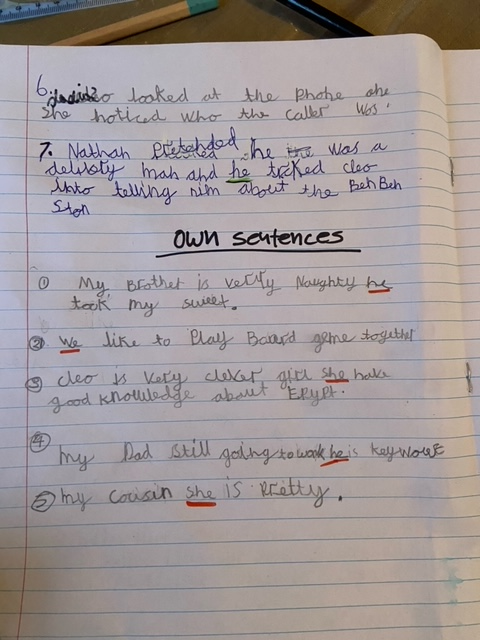 6. looked at the Phone she
She noticed who the caller was.
7. Nathan Pretended he was a
delivery man and he tricked cleo
into telling him about the Beh Beh
Ston
OWN Sentences
① My Brother is verry Naughty he
took my sweet.
② we like to Play Baard geme together
③ cleo is very clever girl she have
good knowledge about EPyPt.
④
my Dad still going to work he is key worke
⑤ my cousin she is Pretty.